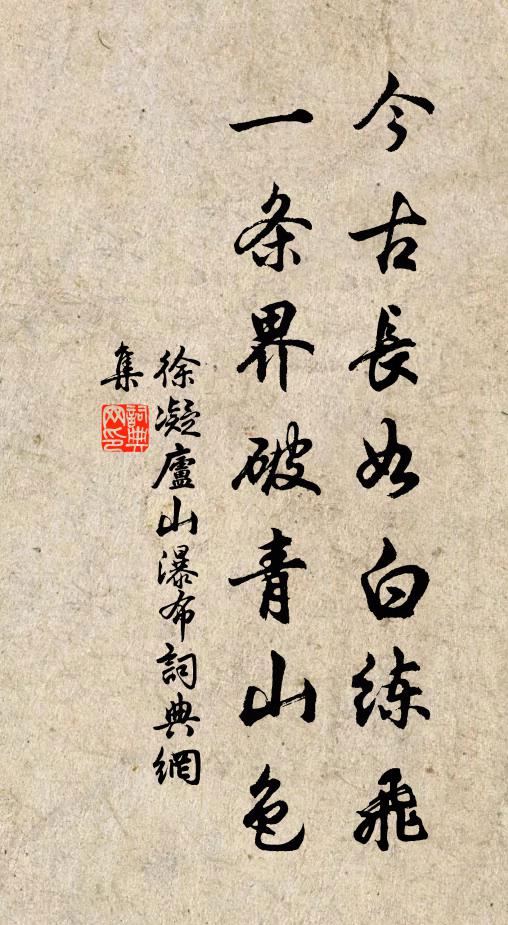 今古長如白练飛
一条界破青山色
徐凝廬山瀑布詞典網
集
詞典
网印